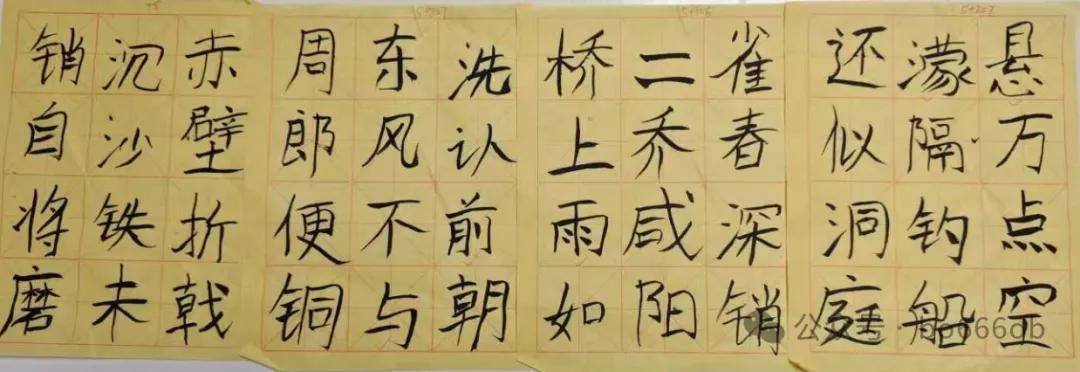 赤壁折戟
沉沙铁未
销自将磨
洗认前朝
东风不与
周郎便铜
雀春深销
二乔咸阳
桥上雨如
悬万点空
濛隔钓船
还似洞庭
公众号